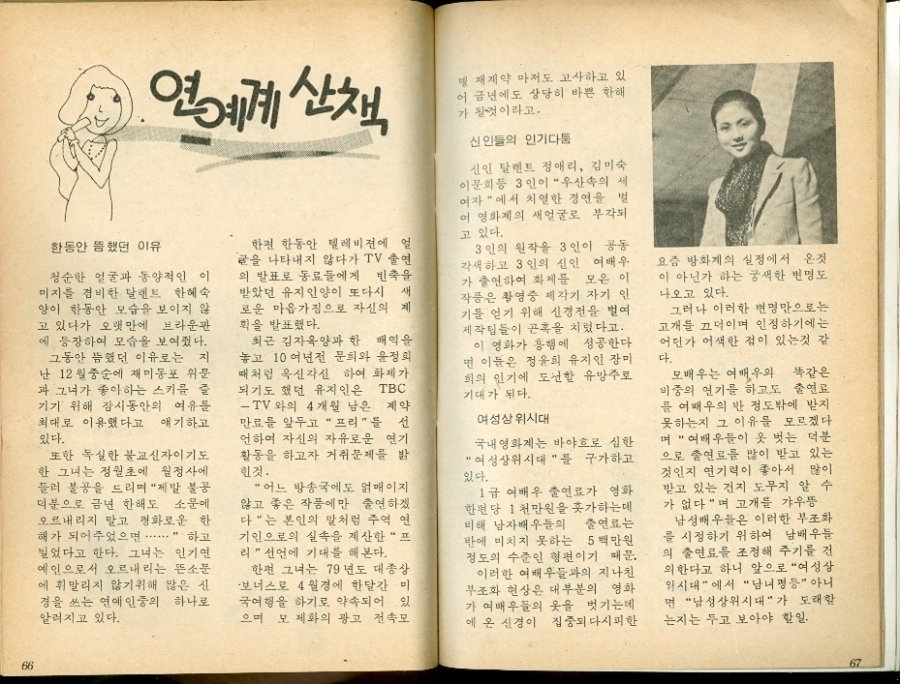 연예계 산책
한동안 뜸했던 이유
청순한 얼굴과 동양적인 이
미지를 겸비한 탈렌트 한혜숙
양이 한동안 모습을 보이지 않
고 있다가 오랫만에 브라운관
에 등장하여 모습을 보여줬다.
그동안 뜸했던 이유로는 지
난 12월중순에 재미동포 위문
과 그녀가 좋아하는 스키를 즐
기기 위해 잠시동안의 여유를
최대로 이용했다고 얘기하고
있다.
또한 독실한 불교신자이기도
한 그녀는 정월초에 월정사에
들러 불공을 드리며 "제발 불공
덕분으로 금년 한해도 소문에
오르내리지 말고 평화로운 한
해가 되어주었으면 ……" 하고
빌었다고 한다. 그녀는 인기연
예인으로서 오르내리는 뜬소문
에 휘말리지 않기위해 많은 신
경을 쓰는 연예인중의 하나로
알려지고 있다.
한편 한동안 텔레비젼에 얼
굴을 나타내지 않다가 TV 출연
의 발표로 동료들에게 빈축을
받았던 유지인양이 또다시 새
로운 마음가짐으로 자신의 계
획을 발표했다.
최근 김자옥양과 한 배역을
놓고 10여년전 문희와 윤정희
때처럼 옥신각신 하여 화제가
되기도 했던 유지인은 TBC
—TV와의 4개월 남은 계약
만료를 앞두고 "프리"를 선
언하여 자신의 자유로운 연기
활동을 하고자 거취문제를 밝
힌것.
"어느 방송국에도 얽매이지
않고 좋은 작품에만 출연하겠
다"는 본인의 말처럼 주역 연
기인으로의 실속을 계산한 "프
리"선언에 기대를 해본다.
한편 그녀는 79년도 대종상
보너스로 4월경에 한달간 미
국여행을 하기로 약속되어 있
으며 모 제화의 광고 전속모
66
델 재계약 마저도 고사하고 있
어 금년에도 상당히 바쁜 한해
가 될것이라고.
신인들의 인기다툼
신인 탈렌트 정애리, 김미숙
이문희등 3인이 "우산속의 세
여자"에서 치열한 경연을 벌
여 영화계의 새얼굴로 부각되
고 있다.
3인의 원작을 3인이 공동
각색하고 3인의 신인 여배우
가 출연하여 화제를 모은 이
작품은 촬영중 제각기 자기 인
기를 얻기 위해 신경전을 벌여
제작팀들이 곤혹을 치렀다고.
이 영화가 흥행에 성공한다
면 이들은 정윤희 유지인 장미
희의 인기에 도전할 유망주로
기대가 된다.
여성상위시대
국내영화계는 바야흐로 심한
"여성상위시대"를 구가하고
있다.
1급 여배우 출연료가 영화
한편당 1천만원을 웃가하는데
비해 남자배우들의 출연료는
반에 미치지 못하는 5백만원
정도의 수준인 형편이기 때문.
이러한 여배우들과의 지나친
부조화 현상은 대부분의 영화
가 여배우들의 옷을 벗기는데
에 온 신경이 집중되다시피한
요즘 방화계의 실정에서 온것
이 아닌가 하는 궁색한 변명도
나오고 있다.
그러나 이러한 변명만으로는
고개를 끄덕이며 인정하기에는
어딘가 어색한 점이 있는것 같
다.
모배우는 여배우와 똑같은
비중의 연기를 하고도 출연료
를 여배우의 반 정도밖에 받지
못하는지 그 이유를 모르겠다
며 "여배우들이 옷 벗는 덕분
으로 출연료를 많이 받고 있는
것인지 연기력이 좋아서 많이
받고 있는 건지 도무지 알 수
가 없다"며 고개를 갸우뚱
남성배우들은 이러한 부조화
를 시정하기 위하여 남배우들
의 출연료를 조정해 주기를 건
의한다고 하니 앞으로 "여성상
위시대"에서 "남녀평등"아니
면 "남성상위시대"가 도래할
는지는 두고 보아야 할일.
67